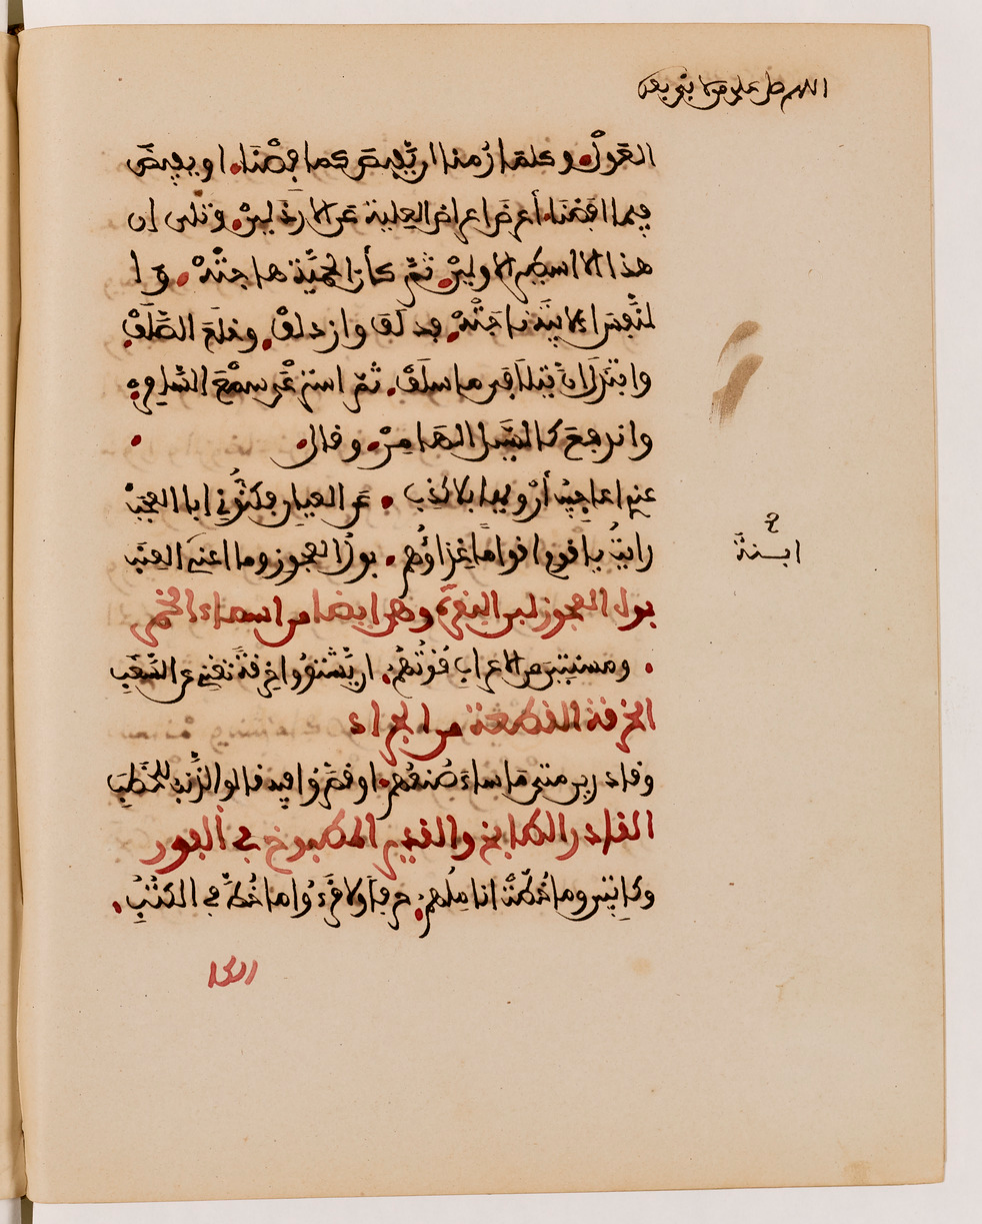 اللهم صل على
القول. وكلما رمنا ان يفيض كما فضنا. او يفيض
فيما افضنا. أعرض اعراض العلية عن الارذلين. وتلى ان
هذا الا اسطير الاولين. ثم كأن الحمية هاجته. و ا
لنفس الابية ناجته. فدلف وازدلف. وخلع الصلف
وابتذل ان يتلافى ما سلف. ثم استرعى سمع السامر.
واندفع كالسيل الهامر. وقال.
عندي اعاجيب أرويها بلا كذب. عن العيان فكنوني ابا العجب
رايت يا قوم اقواما غذاؤهم. بول العجوز وما اعني ابنة العنب
بول العجوز لبن البقرة وهي ايضا من اسماء الخمر
. ومسنتين من الاعراب قوتهم. ان يشتووا خرقة تغني عن السغب
الخرقة القطعة من الجراد
وقادرين متى ما ساء صنعهم. او قصروا فيه قالوا الذنب للحطب
القادر الطابخ والقدير المطبوخ في القدور
وكاتبين وما خطت اناملهم. حرفا ولا قرءوا ما خط في الكتب.
ح
ابنة